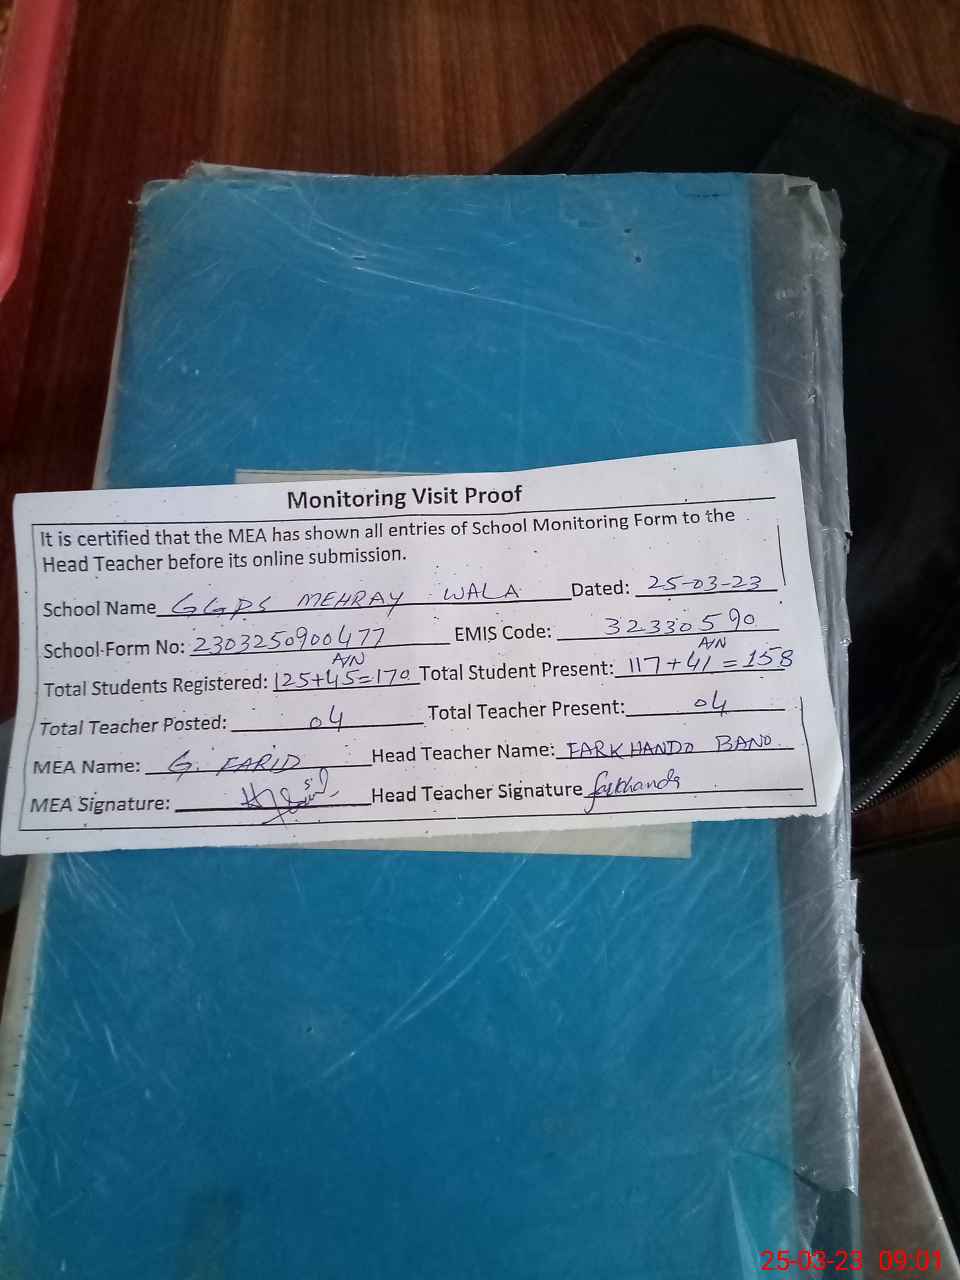 Monitoring Visit Proof
It is certified that the MEA has shown all entries of School Monitoring Form to the
Head Teacher before its online submission.
School Name GGPS MEHRAY WALA Dated: 25-03-23
School Form No: 2303250900477 EMIS Code: 32330590
A/N A/N
Total Students Registered: 125+45=170 Total Student Present: 117+41=158
Total Teacher Posted: 04 Total Teacher Present: 04
MEA Name: G. FARID Head Teacher Name: FARKHANDO BANO
MEA Signature: Head Teacher Signature farkhanda
25-03-23 09:01